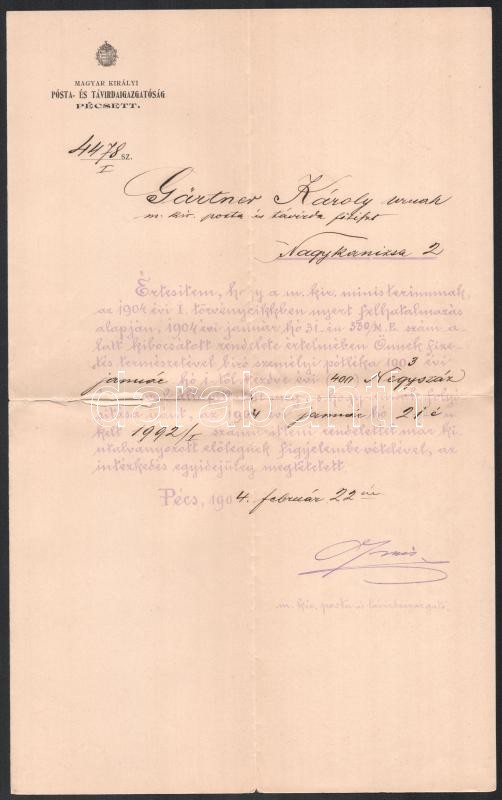 MAGYAR KIRÁLYI
POSTA- ÉS TÁVIRDAIGAZGATÓSÁG
PÉCSETT.
4478 SZ.
I
Gärtner Károly urnak
m. kir. posta és távirda főtiszt
Nagykanizsa 2
Értesitem, hogy a m. kir. ministeriumnak,
az 1904 évi I. törvénycikkben nyert felhatalmazás
alapján, 1904 évi január hó 31.-én 539/M.E. szám a-
latt kibocsátott rendelete értelmében Önnek fize-
tés természetével biró személyi pótléka 1903 évi
január hó 1.-től kezdve évi 400 Négyszáz
1904 január hó 21 é
kelt 1992/I szám alatti rendelettel már ki-
utalványozott előlegnek figyelembe vételével, az
intézkedés egyidejüleg megtétetett.
Pécs, 1904. február 22 én
m. kir. posta és távirdaigazgató.
darabanth